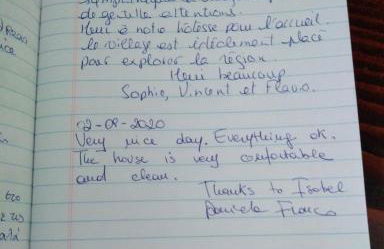 de gentilles attentions.
Merci à notre hôtesse pour l'accueil.
Le village est idéalement placé
pour explorer la région.
Merci beaucoup
Sophie, Vincent et Flavio.
2-09-2020
Very nice day. Everything ok.
The house is very comfortable
and clean.
Thanks to Isabel
Daniela